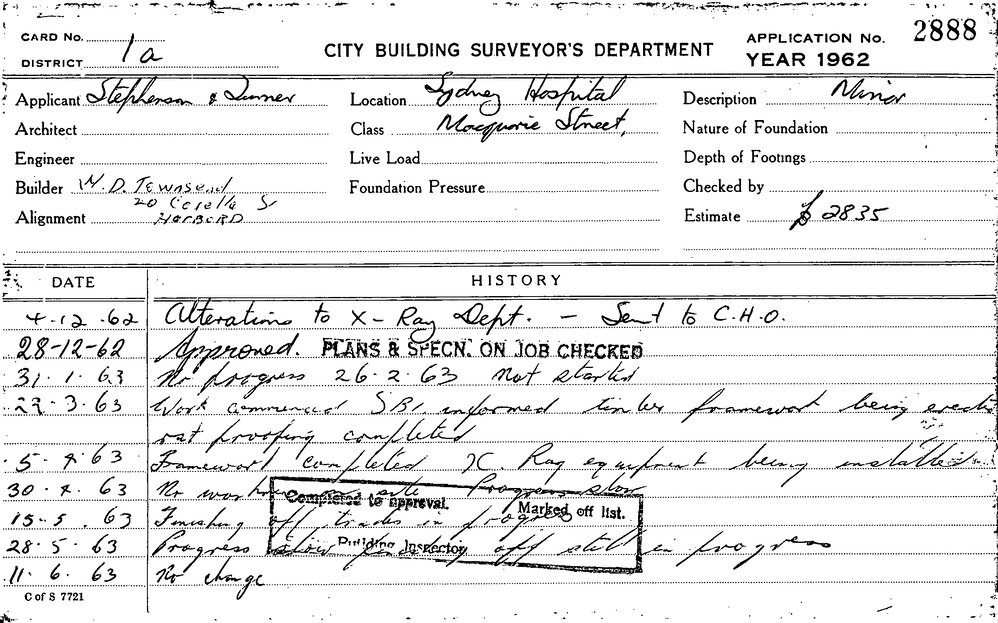 CARD No.
DISTRICT 1a
CITY BUILDING SURVEYOR'S DEPARTMENT
APPLICATION No. 2888
YEAR 1962
Applicant Stephenson & Turner
Location Sydney Hospital
Description Minor
Architect
Class Macquarie Street,
Nature of Foundation
Engineer
Live Load
Depth of Footings
Builder W. D. Townsend
20 Corella S
Foundation Pressure
Checked by
Alignment HARBORD
Estimate £ 2835
DATE HISTORY
4-12-62 Alterations to X-Ray Dept. - Sent to C.H.O.
28-12-62 Approved. PLANS & SPECN. ON JOB CHECKED
31. 1. 63 No progress 26.2.63 Not started
22. 3. 63 Work commenced SBI informed timber framework being
rat proofing completed
5. 4. 63 Framework completed X. Ray equipment being installed
30. 4. 63 No work on site Progress slow
15. 5. 63 Finishing off trades in progress
28. 5. 63 Progress slow off still in progress
11. 6. 63 No change
Completed to approval.
Marked off list.
Building Inspector
C of S 7721